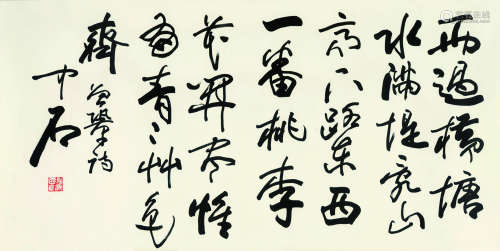 雨過橫塘
水滿堤亂山
高下路東西
一番桃李
花開盡惟
有青々草色
齊
曾鞏詩
中石